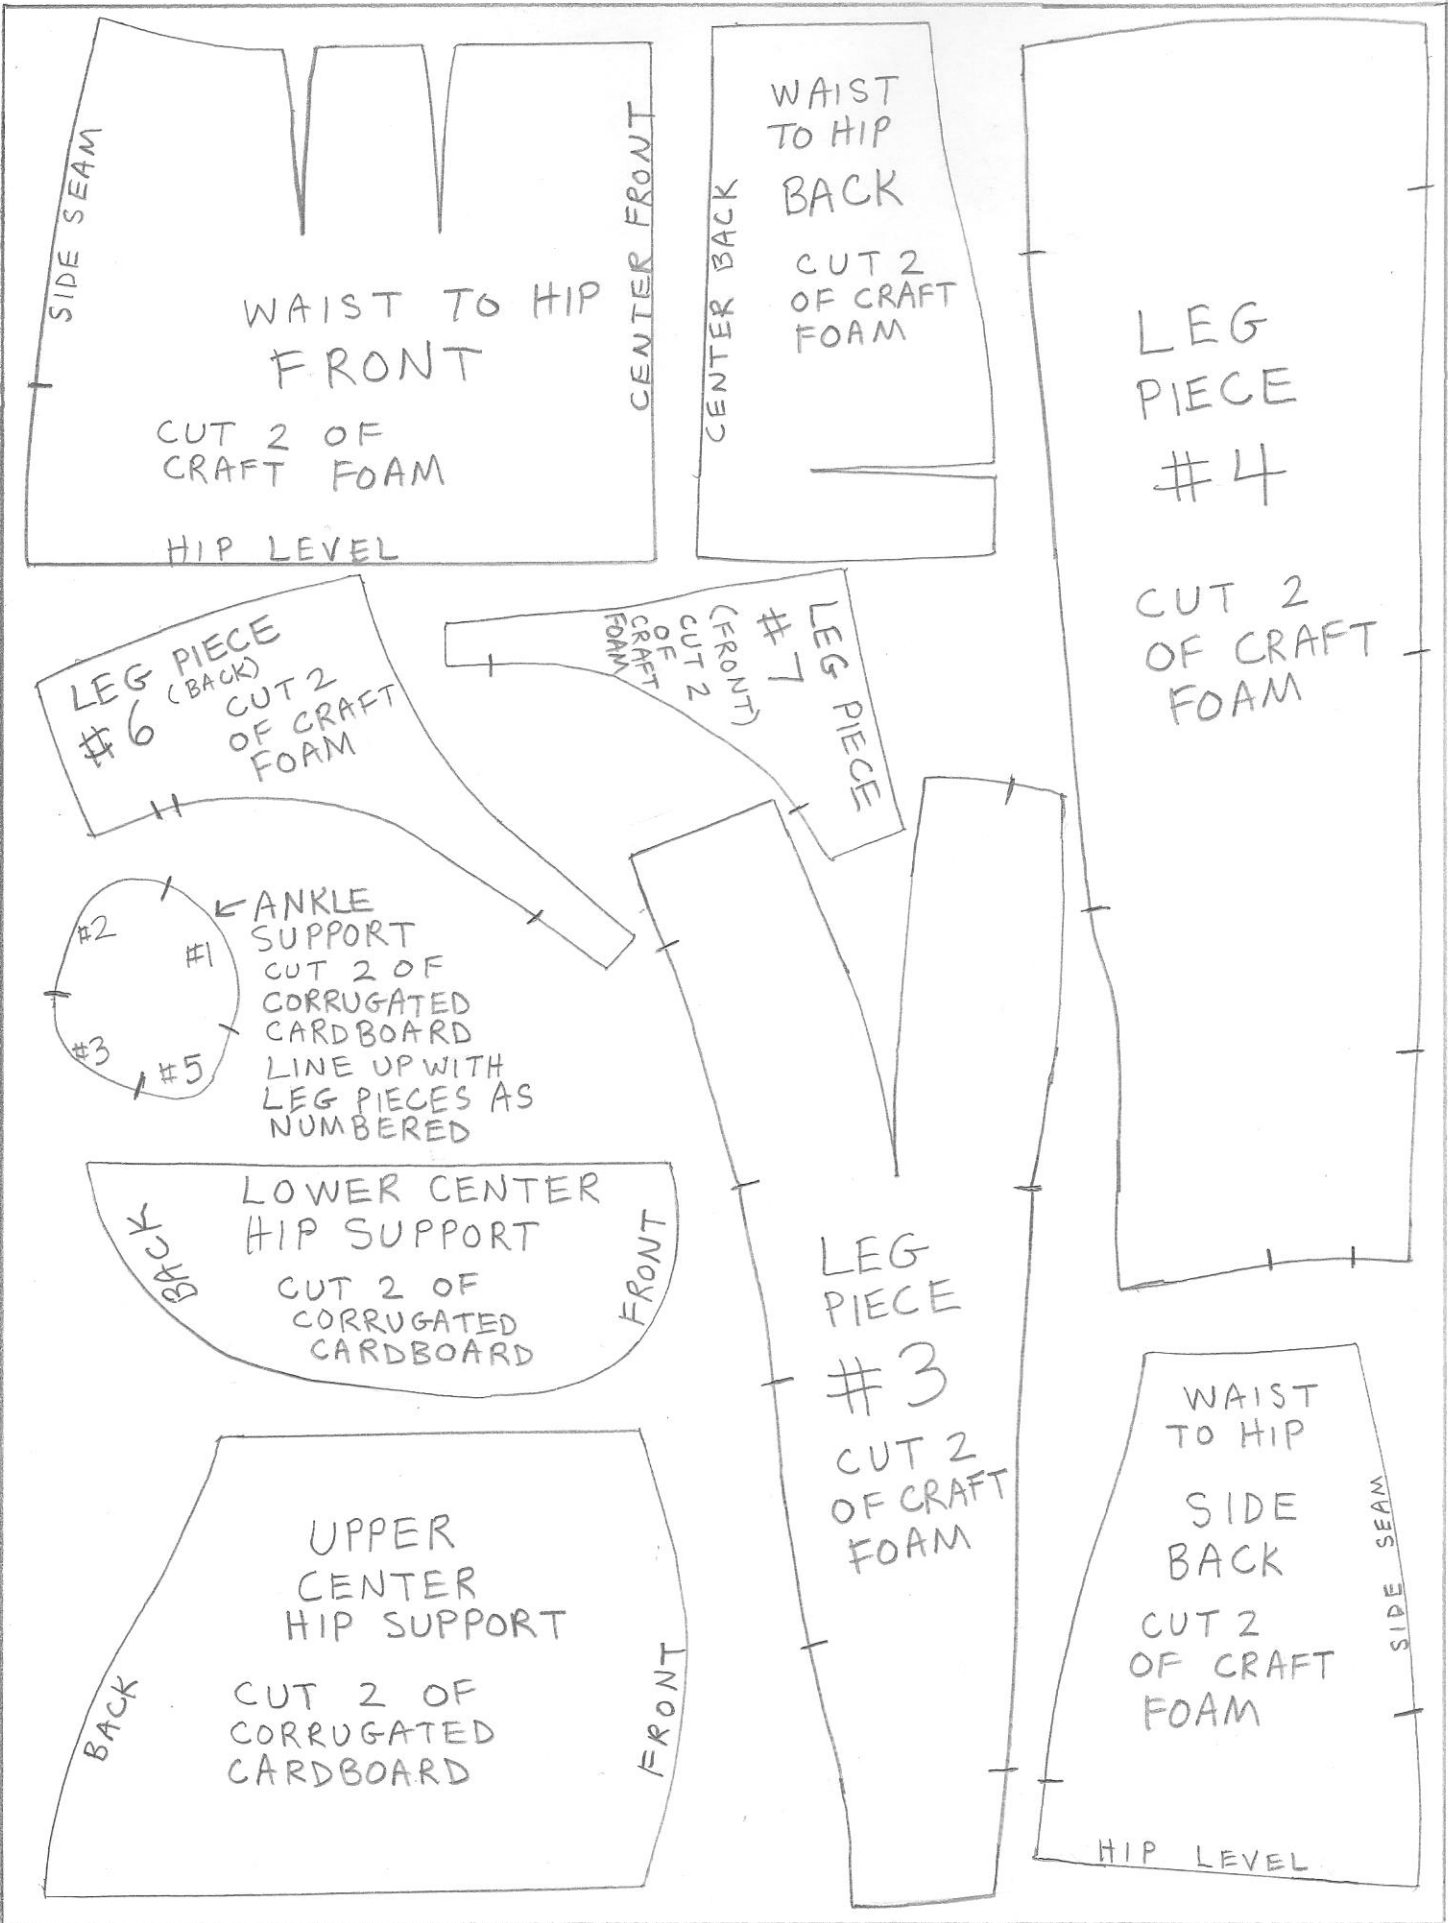 SIDE SEAM
WAIST TO HIP
FRONT
CUT 2 OF
CRAFT FOAM
HIP LEVEL
CENTER FRONT
CENTER BACK
WAIST
TO HIP
BACK
CUT 2
OF CRAFT
FOAM
LEG
PIECE
#4
CUT 2
OF CRAFT
FOAM
LEG PIECE
#6 (BACK)
CUT 2
OF CRAFT
FOAM
LEG PIECE
#7
(FRONT)
CUT 2
OF
CRAFT
FOAM
#2
#1
#3
#5
ANKLE
SUPPORT
CUT 2 OF
CORRUGATED
CARDBOARD
LINE UP WITH
LEG PIECES AS
NUMBERED
LOWER CENTER
HIP SUPPORT
CUT 2 OF
CORRUGATED
CARDBOARD
BACK
FRONT
LEG
PIECE
#3
CUT 2
OF CRAFT
FOAM
UPPER
CENTER
HIP SUPPORT
CUT 2 OF
CORRUGATED
CARDBOARD
BACK
FRONT
WAIST
TO HIP
SIDE
BACK
CUT 2
OF CRAFT
FOAM
SIDE SEAM
HIP LEVEL